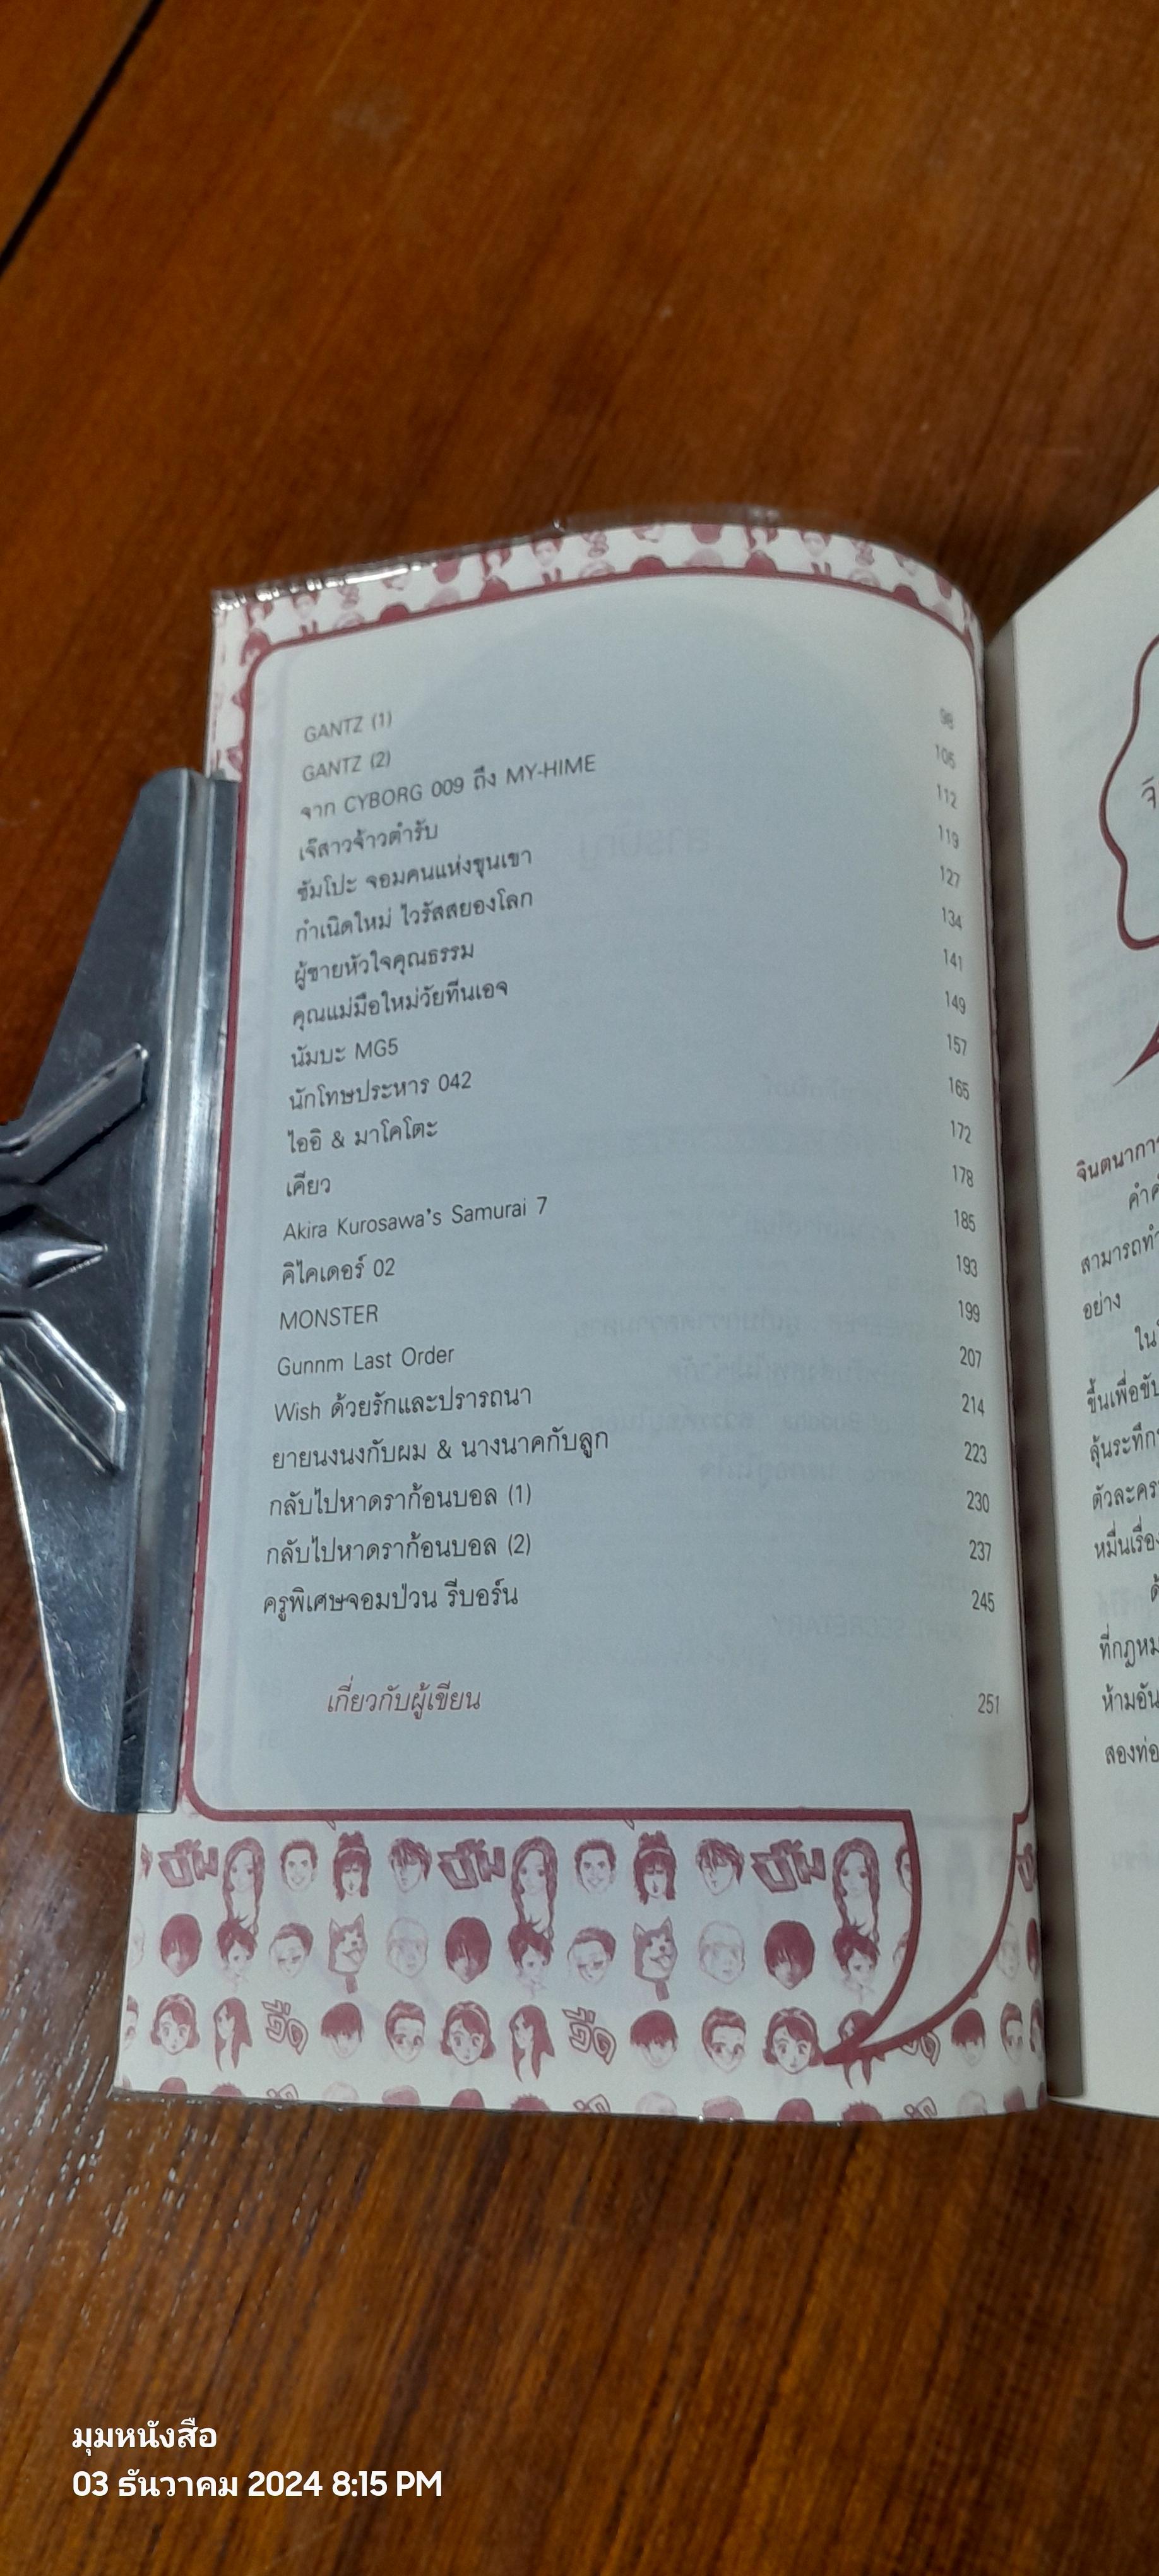 GANTZ (1) 98
GANTZ (2) 105
จาก CYBORG 009 ถึง MY-HIME 112
เจ๊สาวจ้าวตำรับ 119
ซัมโปะ จอมคนแห่งขุนเขา 127
กำเนิดใหม่ ไวรัสสยองโลก 134
ผู้ชายหัวใจคุณธรรม 141
คุณแม่มือใหม่วัยทีนเอจ 149
นัมบะ MG5 157
นักโทษประหาร 042 165
ไออิ & มาโคโตะ 172
เคียว 178
Akira Kurosawa's Samurai 7 185
คิไคเดอร์ 02 193
MONSTER 199
Gunnm Last Order 207
Wish ด้วยรักและปรารถนา 214
ยายนงนงกับผม & นางนาคกับลูก 223
กลับไปหาดราก้อนบอล (1) 230
กลับไปหาดราก้อนบอล (2) 237
ครูพิเศษจอมป่วน รีบอร์น 245
เกี่ยวกับผู้เขียน 251
จินตนาการ
สามารถทำ
อย่าง
ใน
ขึ้นเพื่อขับ
ลุ้นระทึก
ตัวละคร
หมื่นเรื่อง
ที่กฎหม
ห้ามอัน
สองท่อ
มุมหนังสือ
03 ธันวาคม 2024 8:15 PM